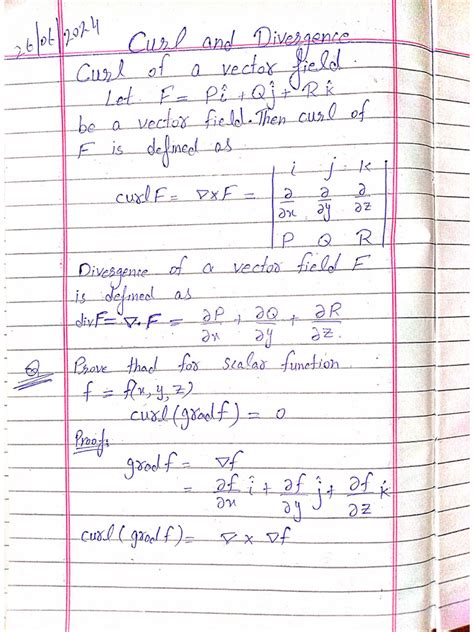 26/06/2024
Curl and Divergence
Curl of a vector field.
Let F = Pî + Qĵ + Rk̂
be a vector field. Then curl of
F is defined as
i j k
curl F = ∇×F = | ∂/∂x ∂/∂y ∂/∂z |
P Q R
Divergence of a vector field F
is defined as
div F = ∇.F = ∂P/∂x + ∂Q/∂y + ∂R/∂z.
Q Prove thad for scalar function
f = f(x, y, z)
curl (grad f) = 0
Proof:
grad f = ∇f
= ∂f/∂x î + ∂f/∂y ĵ + ∂f/∂z k̂
curl (grad f) = ∇ × ∇f